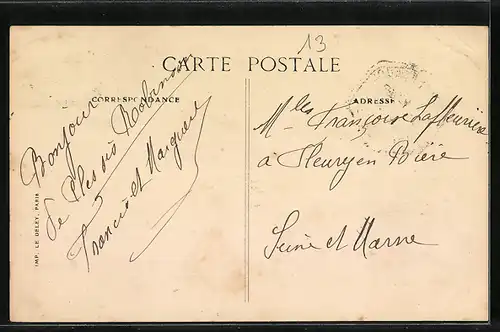 13
CARTE POSTALE
CORRESPONDANCE
ADRESSE
Bonjour
de Plessis Robinson
Francis et Marguerite
Mlles Françoise Lafleurière
a Fleury en Bière
Seine et Marne
IMP. LE DELEY, PARIS